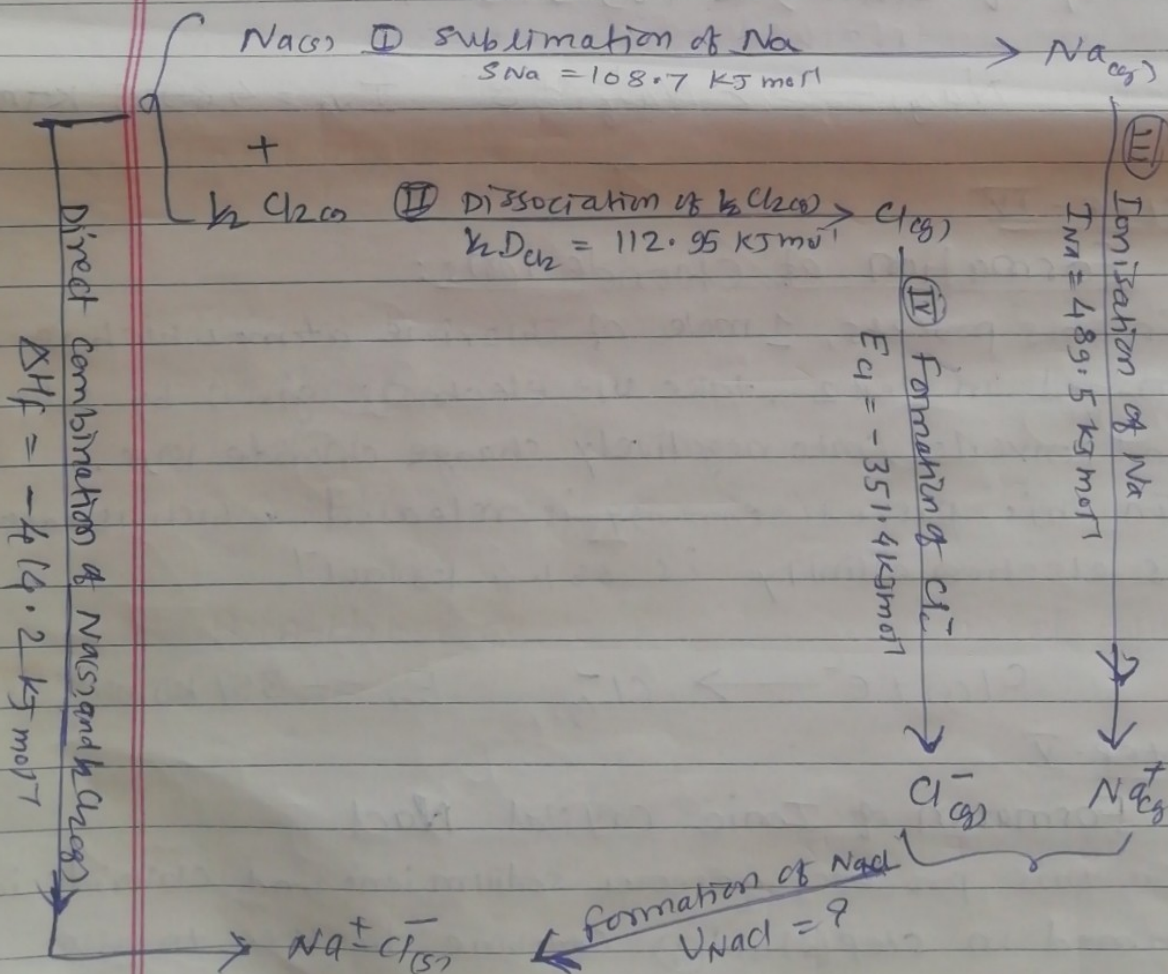 Na(s) Ⓘ sublimation of Na → Na(g)
SNa = 108.7 KJ mol⁻¹
+
½ Cl2(g) Ⅱ Dissociation of ½ Cl2(g) → Cl(g)
½ DCl2 = 112.95 KJ mol⁻¹
Ⅲ Ionisation of Na
INa = 489.5 KJ mol⁻¹
Ⅳ Formation of Cl⁻
ECl = -351.4 KJ mol⁻¹
Direct combination of Na(s) and ½ Cl2(g)
ΔHf = -414.2 KJ mol⁻¹
Cl⁻(g) Na⁺(g)
Formation of NaCl
UNaCl = ?
Na⁺ Cl⁻(s)